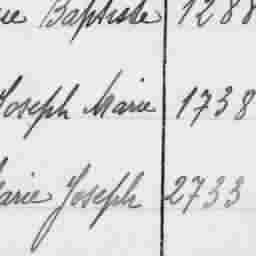 Baptiste 1288
Joseph Marie 1738
Marie Joseph 2733